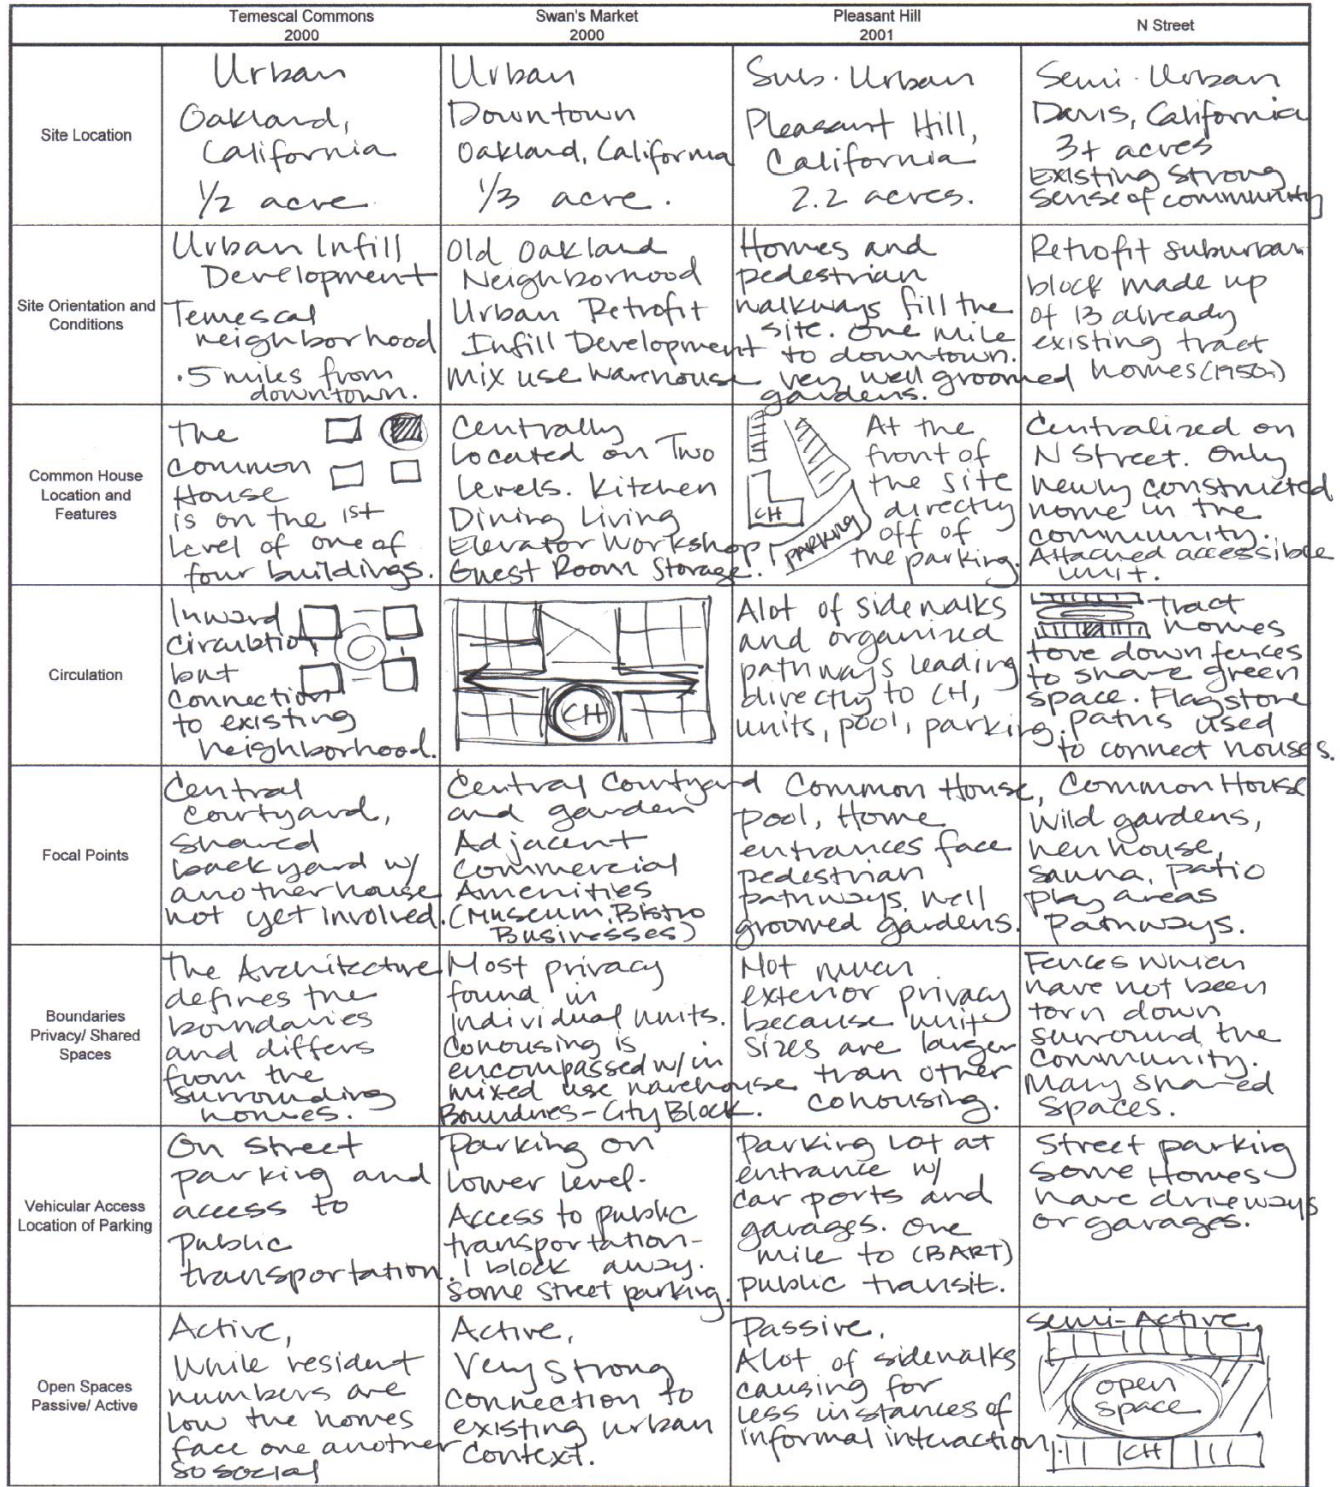 Temescal Commons
2000
Swan's Market
2000
Pleasant Hill
2001
N Street
Site Location
Urban
Oakland,
California
1/2 acre.
Urban
Downtown
Oakland, California
1/3 acre.
Sub-Urban
Pleasant Hill,
California
2.2 acres.
Semi-Urban
Davis, California
3+ acres
Existing Strong
Sense of community
Site Orientation and
Conditions
Urban Infill
Development
Temescal
neighborhood
.5 miles from
downtown.
Old Oakland
Neighborhood
Urban Retrofit
Infill Development
Mix use Warehouse
Homes and
pedestrian
walkways fill the
site. One mile
to downtown.
Very well groomed
gardens.
Retrofit suburban
block made up
of 13 already
existing tract
homes (1950s)
Common House
Location and
Features
The
Common
House
is on the 1st
Level of one of
four buildings.
Centrally
Located on Two
Levels. Kitchen
Dining Living
Elevator Workshop
Guest Room Storage.
CH
PARKING
At the
front of
the site
directly
off of
the parking.
Centralized on
N Street. Only
newly constructed
home in the
community.
Attached accessible
unit.
Circulation
Inward
circulation
but
connection
to existing
neighborhood.
CH
Alot of sidewalks
and organized
pathways leading
directly to CH,
units, pool, parking.
tract
homes
tore down fences
to share green
space. Flagstone
paths used
to connect houses.
Focal Points
Central
Courtyard,
Shared
backyard w/
another house
not yet involved.
Central Courtyard
and garden
Adjacent
Commercial
Amenities
(Museum, Bistro
Businesses)
Common House,
pool, Home
entrances face
pedestrian
pathways, well
groomed gardens.
Common House
Wild gardens,
hen house,
sauna, patio
play areas
Pathways.
Boundaries
Privacy/ Shared
Spaces
The Architecture
defines the
boundaries
and differs
from the
surrounding
homes.
Most privacy
found in
Individual units.
Cohousing is
encompassed w/in
mixed use warehouse
Boundries-City Block.
Not much
exterior privacy
because unit
sizes are larger
than other
cohousing.
Fences which
have not been
torn down
surround the
community.
Many shared
spaces.
Vehicular Access
Location of Parking
On Street
parking and
access to
public
transportation.
Parking on
lower level.
Access to public
transportation-
1 block away.
Some street parking.
Parking Lot at
entrance w/
car ports and
garages. One
mile to (BART)
public transit.
Street parking
some Homes
have driveways
or garages.
Open Spaces
Passive/ Active
Active,
While resident
numbers are
low the homes
face one another
so social
Active,
Very Strong
connection to
existing urban
context.
Passive,
Alot of sidewalks
causing for
less instances of
informal interaction.
Semi-Active
open
space
CH